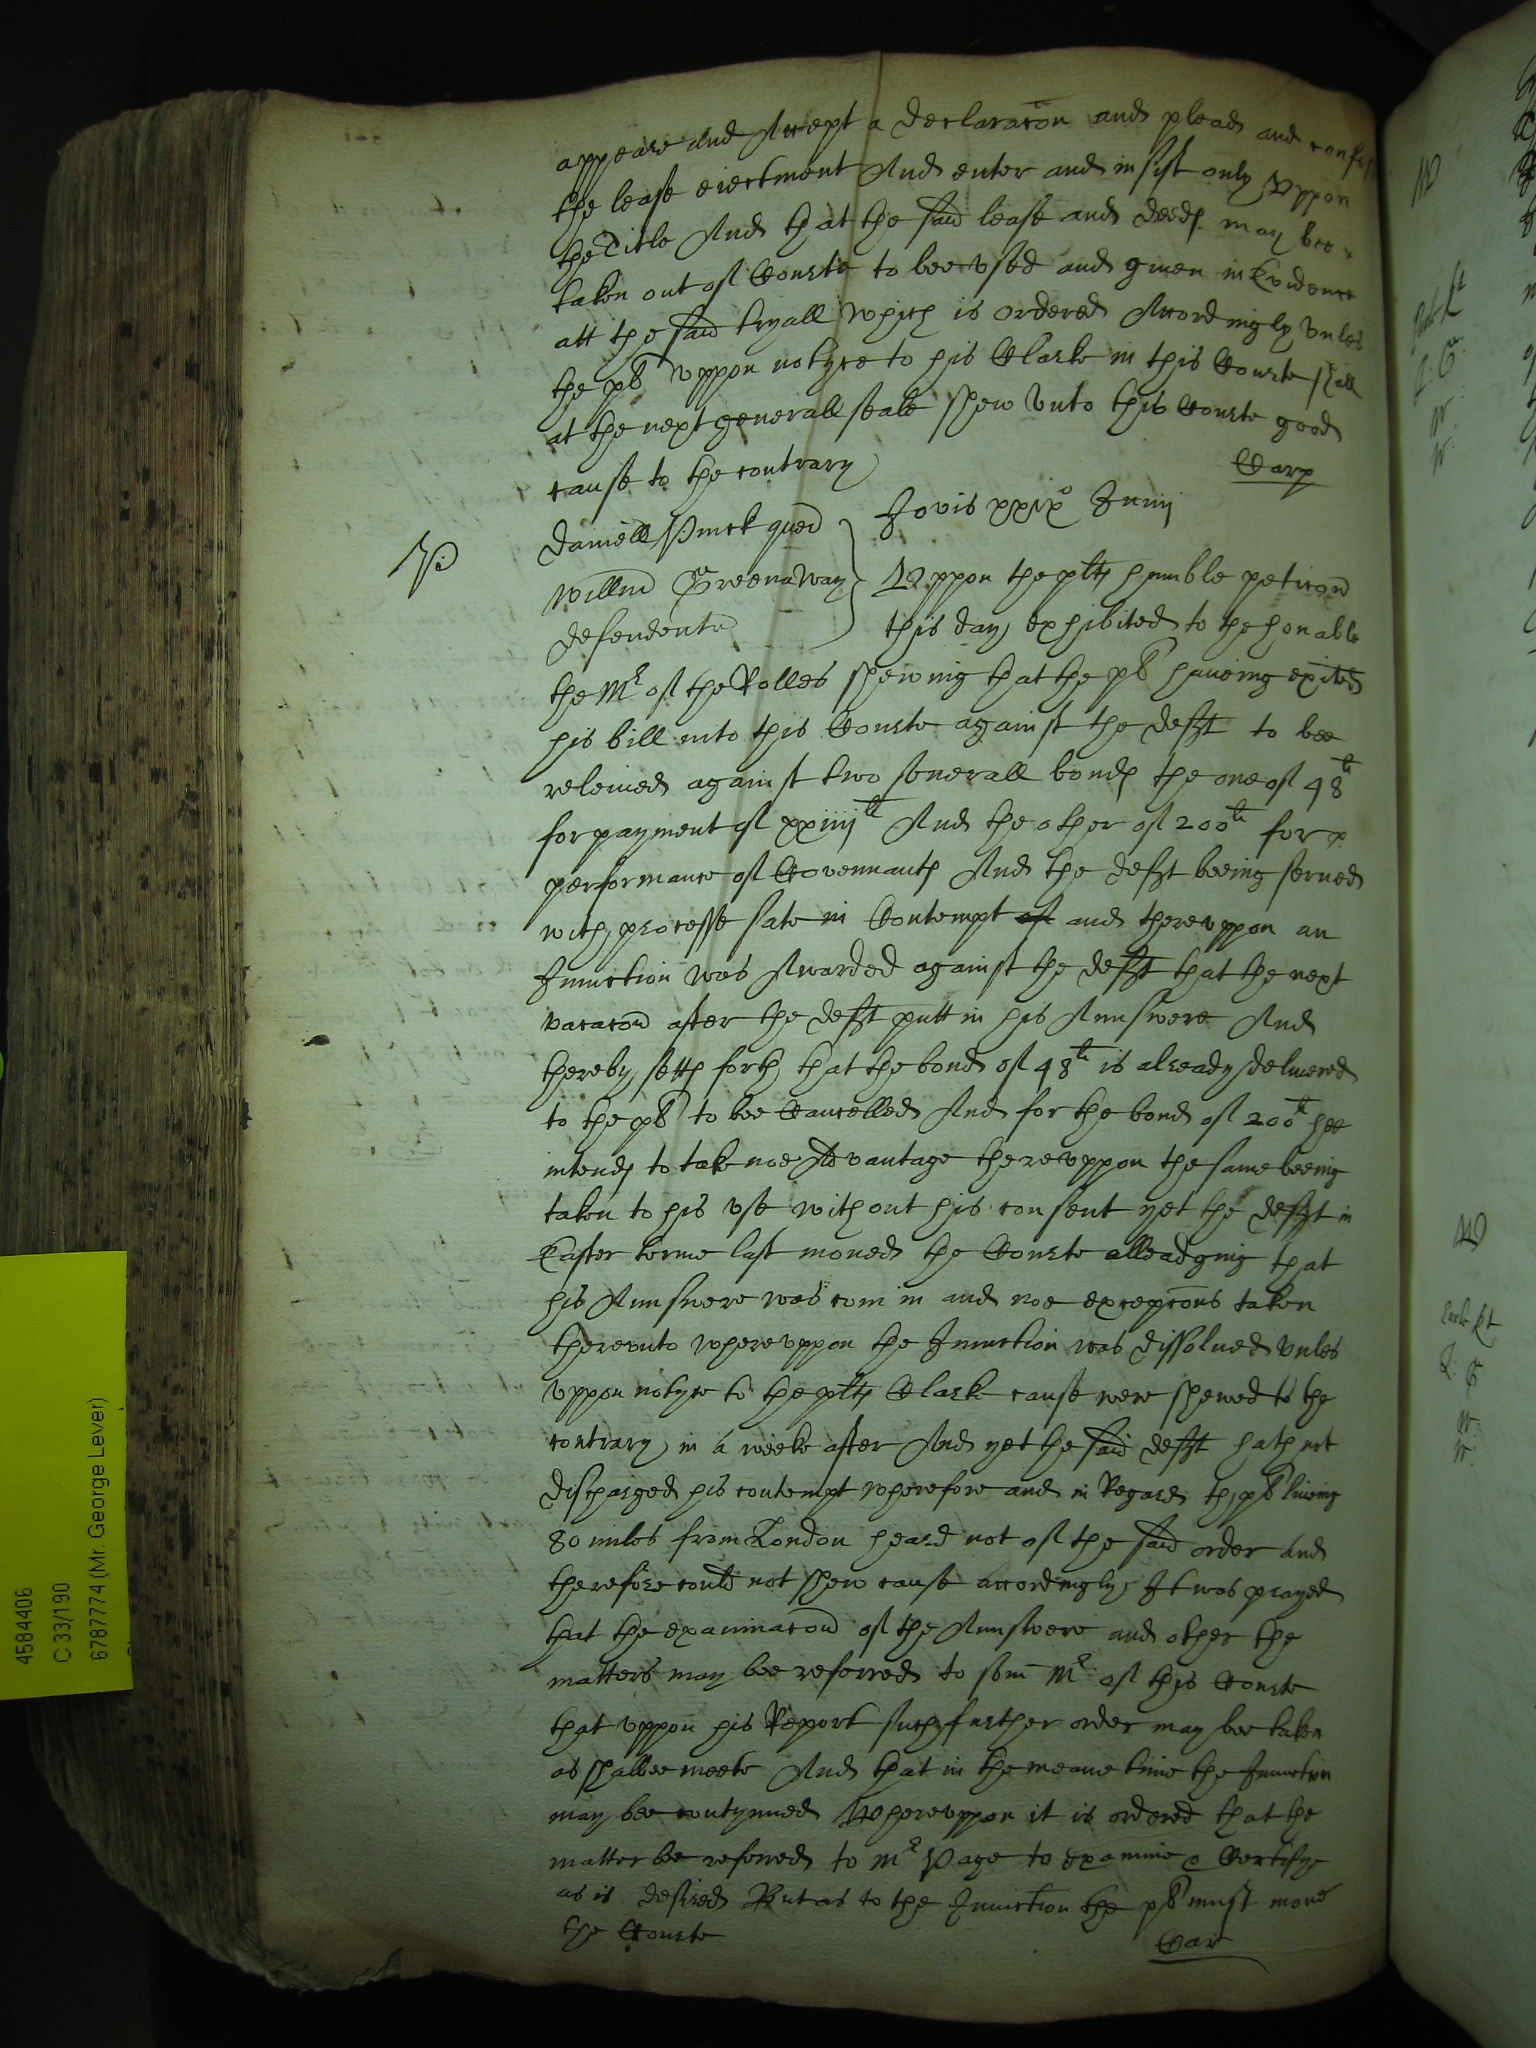 appeare And Accept a declaracon and plead and confess
the lease eiectment And enter and insist only Vppon
the Title And that the said lease and deeds may bee
taken out of Courte to bee vsed and giuen in Evidence
att the said tryall which is ordered Accordingly vnles
the pl vppon notyce to his Clarke in this Courte shall
at the next generall seale shew vnto this Courte good
cause to the contrary
Carp
Jovis xxixo Junij
P
Daniell Pinck quer
Willm Greenaway
defendente
Vppon the plts humble peticon
this day exhibited to the honable
the Mr of the Rolles shewing that the pl haueing exited
his bill into this Courte against the deft to bee
releiued against two seuerall bonds the one of 48li
for payment of xxiiijli And the other of 200li for
performance of Covennants And the deft beeing serued
with processe sate in Contempt of and therevppon an
Iniunction was Awarded against the deft that the next
vacacon after the deft putt in his Annswere And
thereby setts forth that the bond of 48li is already deliuered
to the pl to bee Cancelled And for the bond of 200li hee
intends to take noe Advantage therevppon the same beeing
taken to his vse without his consent yet the deft in
Easter terme last moued the Courte alleadging that
his Annswere was com in and noe excepcons taken
therevnto wherevppon the Iniunction was dissolued vnles
vppon notyce to the plts Clarke cause were shewed to the
contrary in a weeke after And yet the said deft hath not
discharged his contempt wherefore and in Regard th pl liueing
80 miles from London heard not of the said order and
therefore could not shew cause accordingly It was prayed
that the examinacon of the Annswere and other the
matters may bee referred to som Mr of this Courte
that vppon his Report such further order may bee taken
as shalbee meete And that in the meane time the Iniunction
may bee contynued Wherevppon it is ordered that the
matter bee referred to Mr Page to examine & Certifye
as is desired But as to the Iniunction the pl must moue
the Courte
Car
4584406
C 33/190
6787774 (Mr. George Lever)